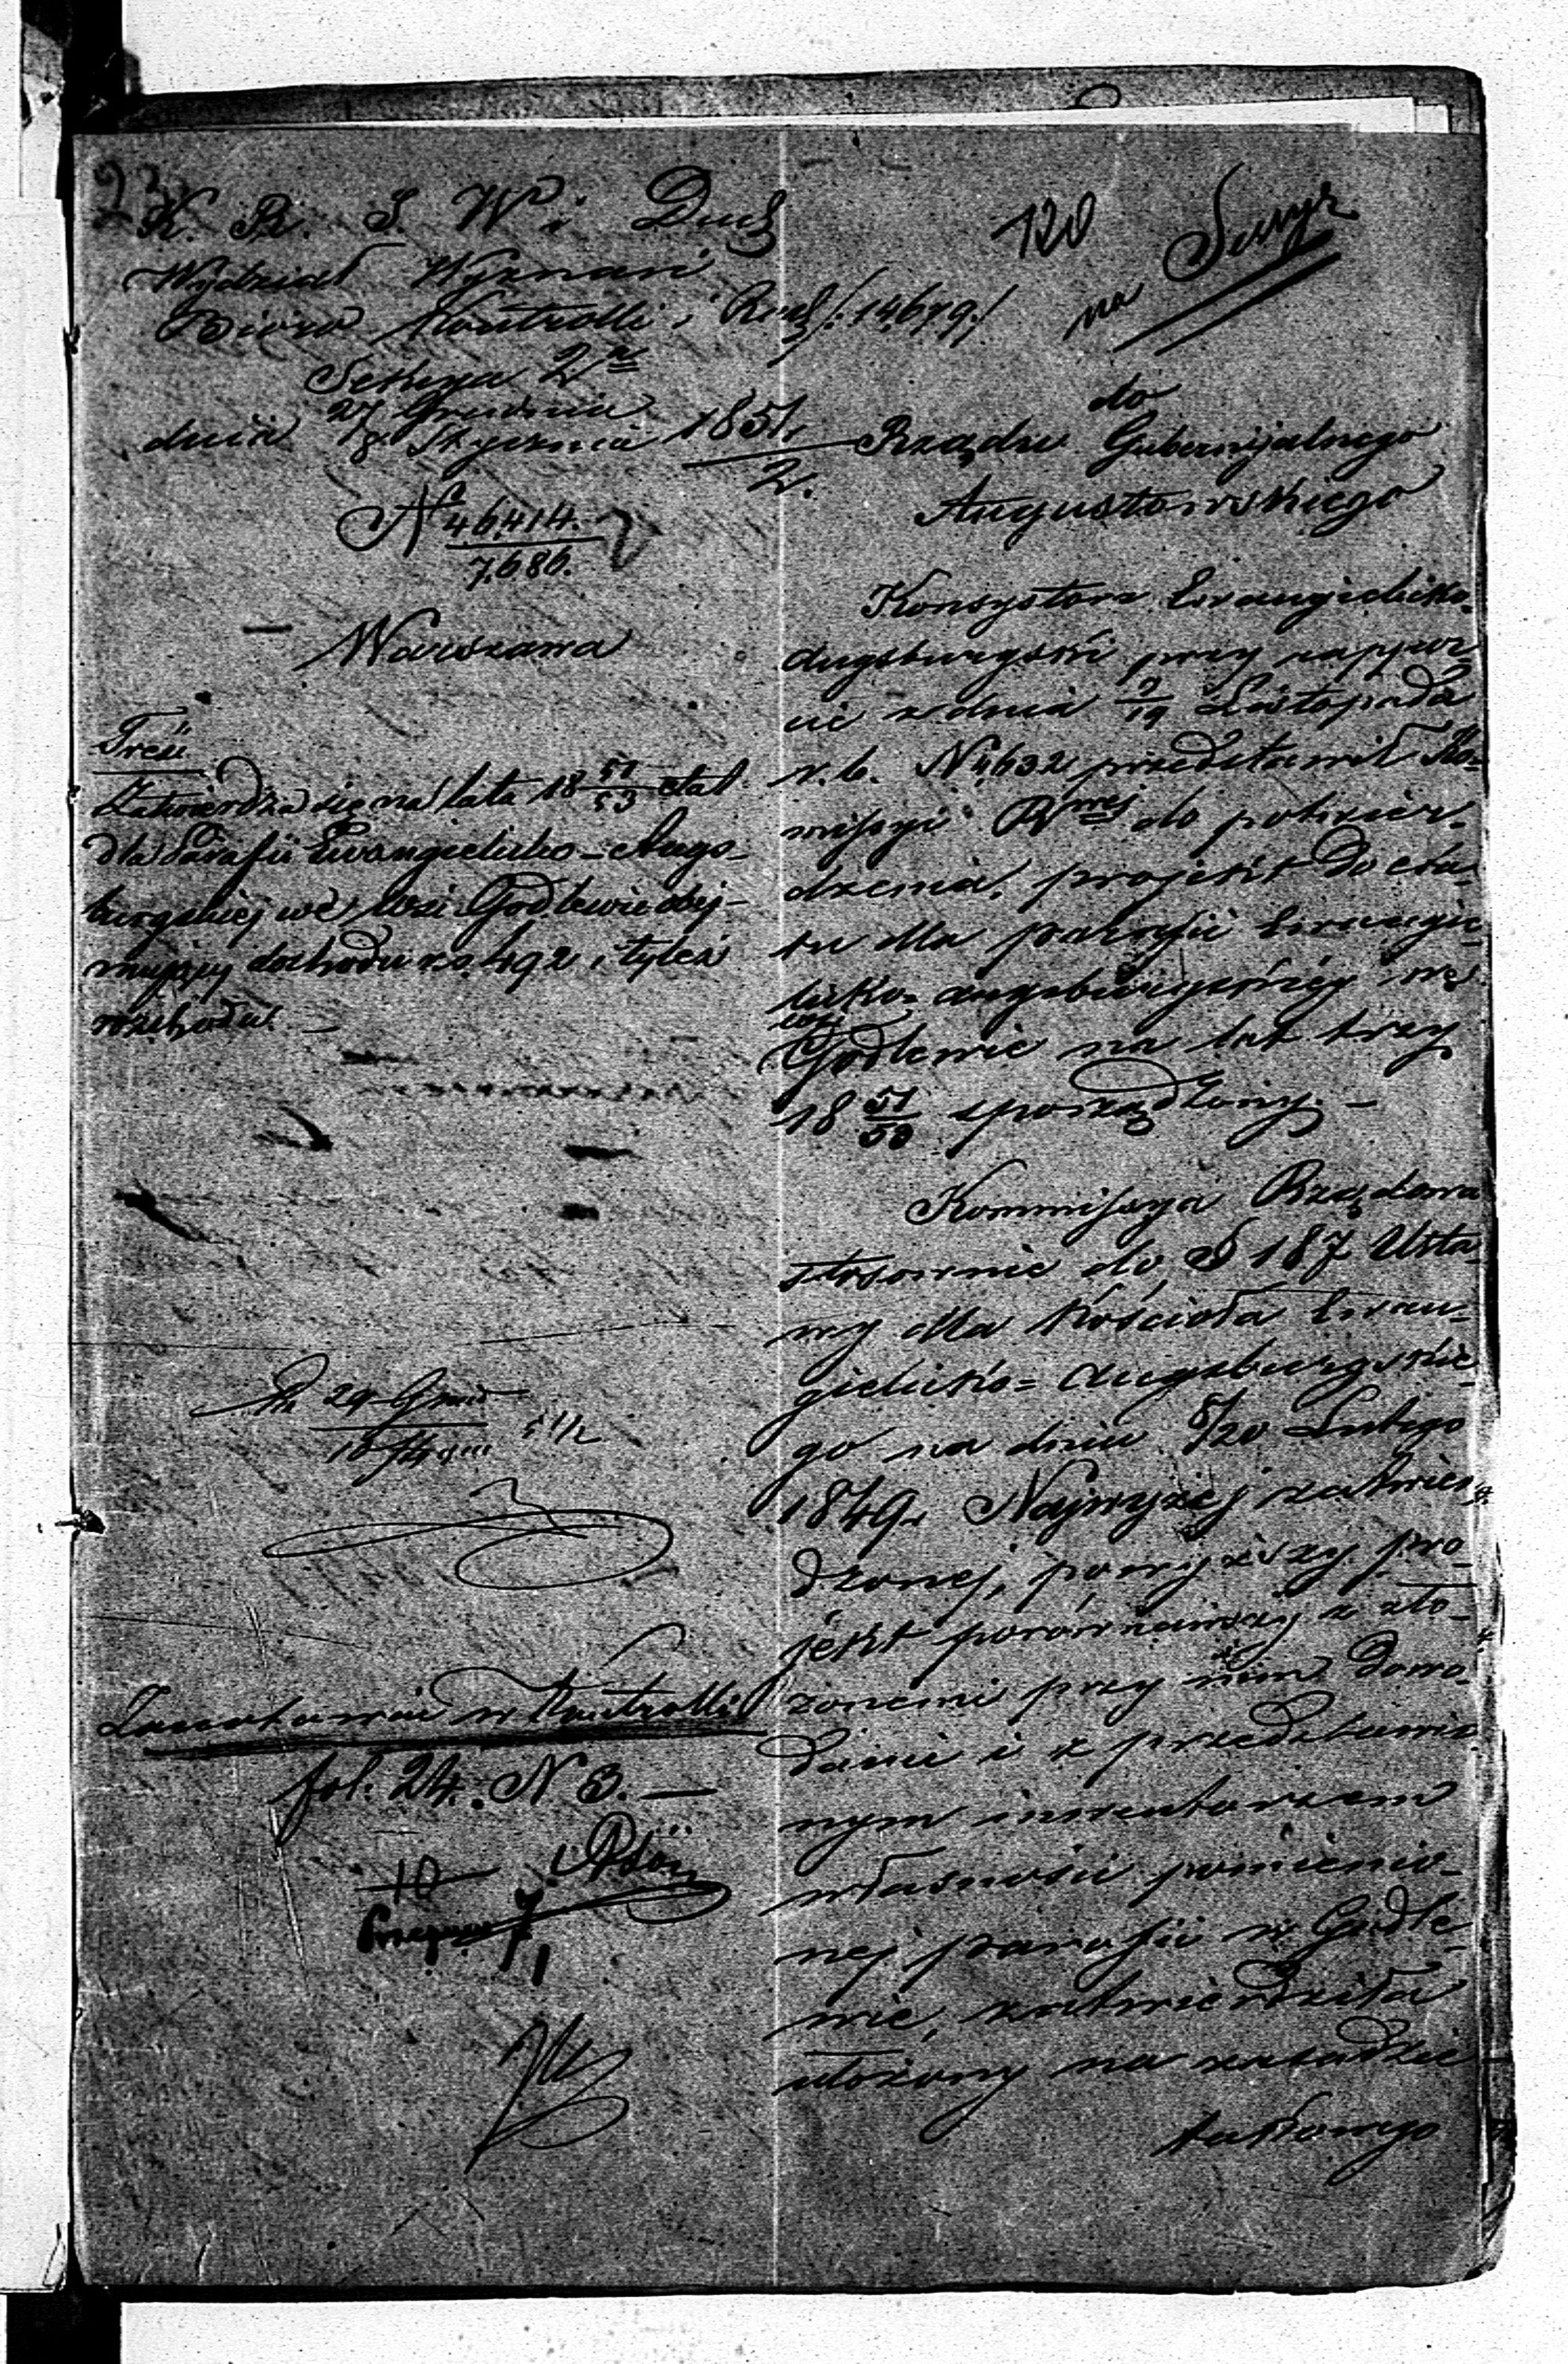 23
K. R. S. W i Duch
Wydział Wyznań
Biuro Kontrolli i Rach /:14679:/
Sekcya 2ga
dnia 27 Grudnia / 8 Stycznia 1851/2.
N 46414. / 7686.
Warszawa
Treść
Zatwierdza się na lata 18 51/53 etat
dla Parafii Ewangielicko-Augs-
burgskiej we wsi Godlewie obej-
mujący dochodu r.s. 492 i tyleż
rozchodu. —
29 Grud
10
Zanotowano w Kontrolli
fol. 24. N 3. —
10
120
na
do
Rządu Gubernijalnego
Augustowskiego
Konsystorz Ewangielicko-
Augsburgski przy rappor-
cie z dnia 7/19 Listopada
r. b. N 1632 przedstawił Ko-
missyi Rwej do potwier-
dzenia, projekt do eta-
tu dla parafii Ewangie-
licko-augsburgskiej we
wsi
Godlewie na lat trzy
18 51/53 sporządzony. —
Kommissya Rządowa
stosownie do § 187 Usta-
wy dla Kościoła Ewan-
gielicko-Augsburgskie-
go na dniu 8/20 Lutego
1849 r. Najwyżej zatwier-
dzonej, powyższy pro-
jekt porównawszy z zło-
żonemi przy nim dowo-
dami i z przedstawio-
nym inwentarzem
własności pomienio-
nej parafii w Godle-
wie, zatwierdziła
ułożony na zasadzie
takowego